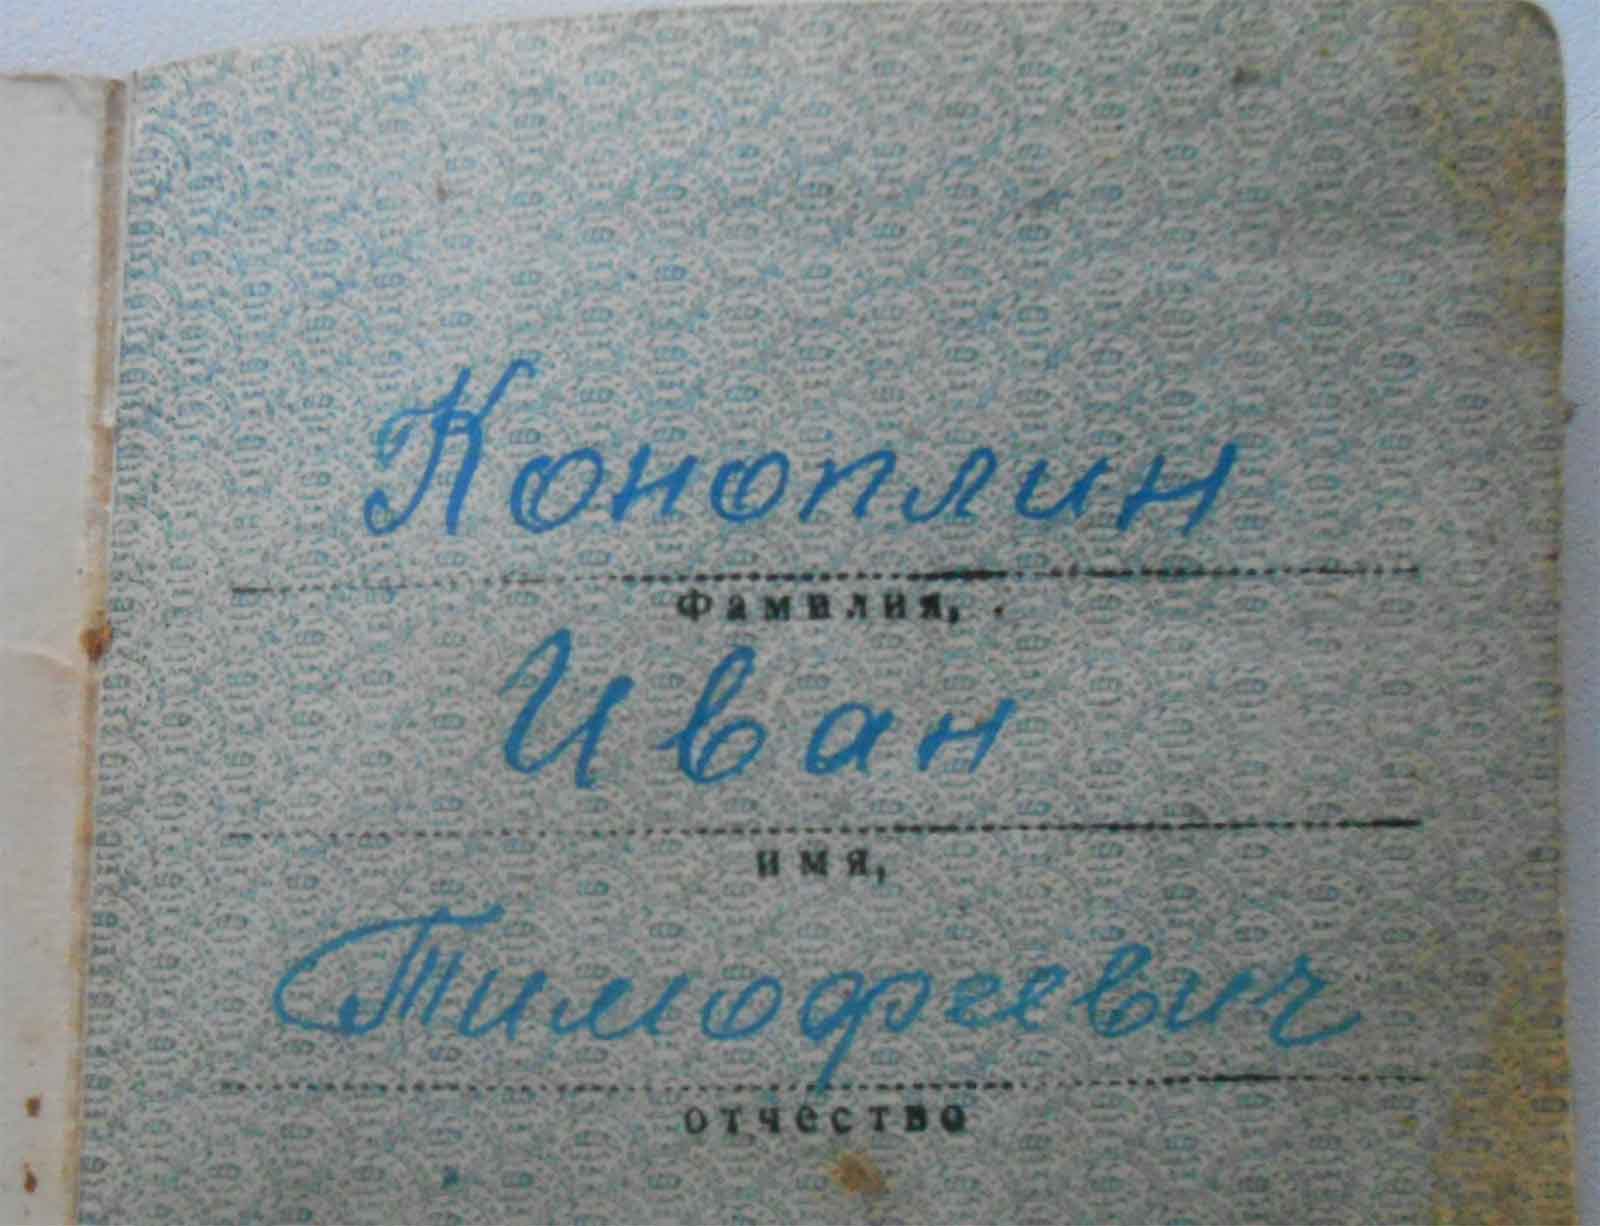 Коноплин
фамилия,
Иван
имя,
Тимофеевич
отчество